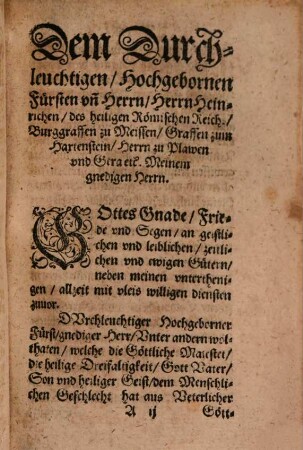 Dem Durch-
leuchtigen/ Hochgebornen
Fürsten vn̄ Herrn/ Herrn Hein-
richen/ des heiligen Römischen Reich.
Burggraffen zu Meissen/ Graffen zum
Hartenstein/ Herrn zu Plawen
vnd Gera etc. Meinem
gnedigen Herrn.
GOttes Gnade/ Frie-
de vnd Segen/ an geistli-
chen vnd leiblichen/ zeitli-
chen vnd ewigen Gütern/
neben meinen vntertheni-
gen/ allzeit mit vleis willigen diensten
zuuor.
DVrchleuchtiger Hochgeborner
Fürst/ gnediger Herr/ Vnter andern wol-
thaten/ welche die Göttliche Maiestet/
die heilige Dreifaltigkeit/ Gott Vater/
Son vnd heiliger Geist/ dem Menschli-
chen Geschlecht hat aus Veterlicher
A ij Gött-